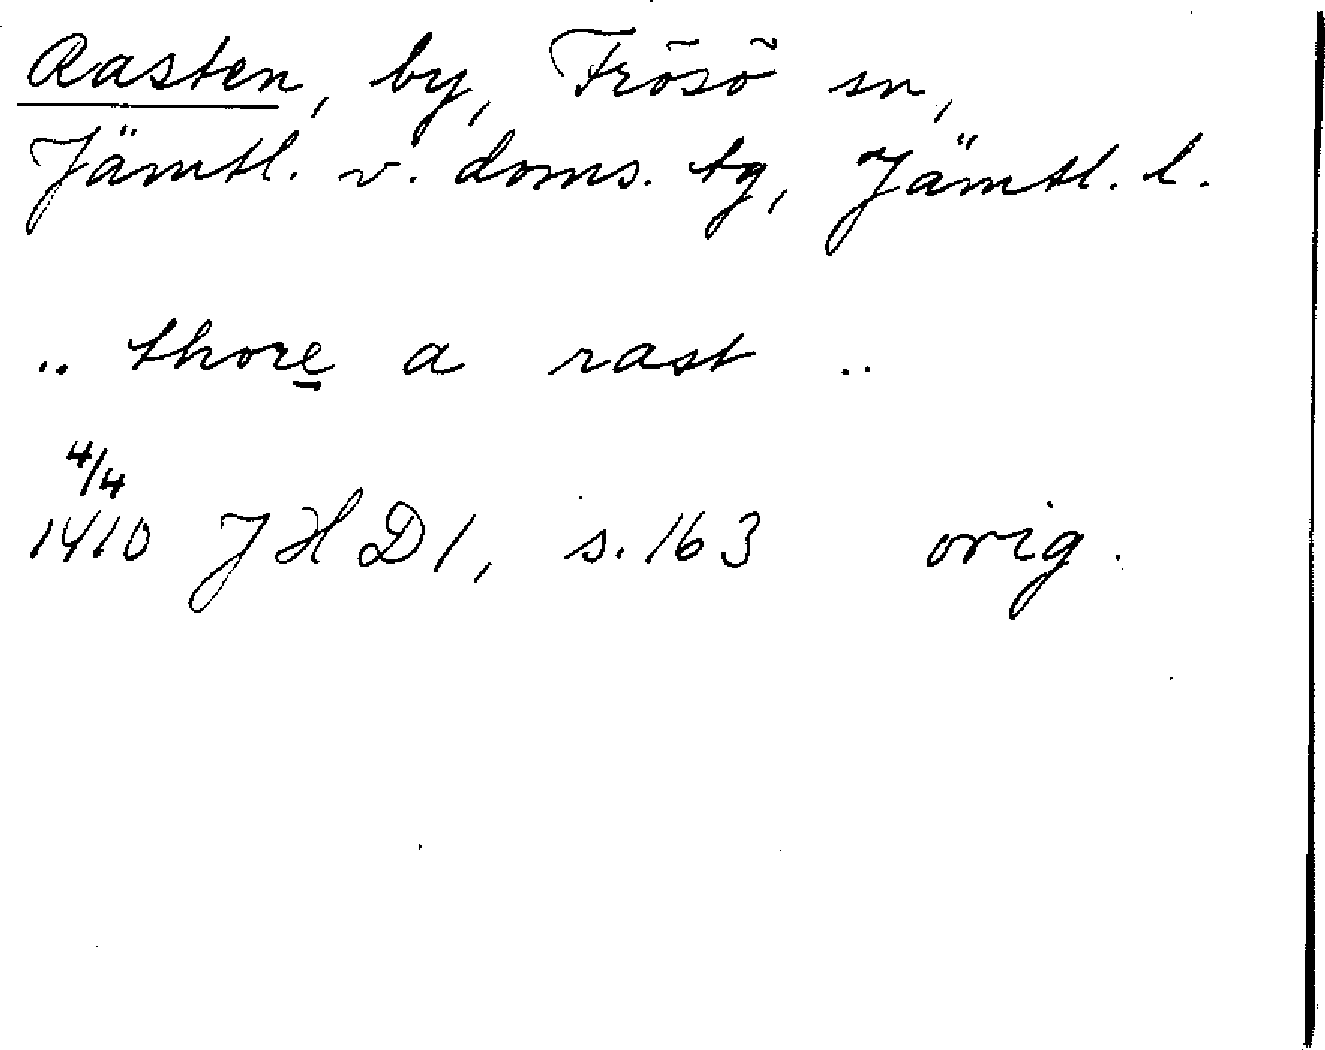 Rasten, by, Frösö sn,
Jämtl. v. doms. tg, Jämtl. l.
.. thore a rast ..
4/4
1410 JHD1, s. 163 orig.